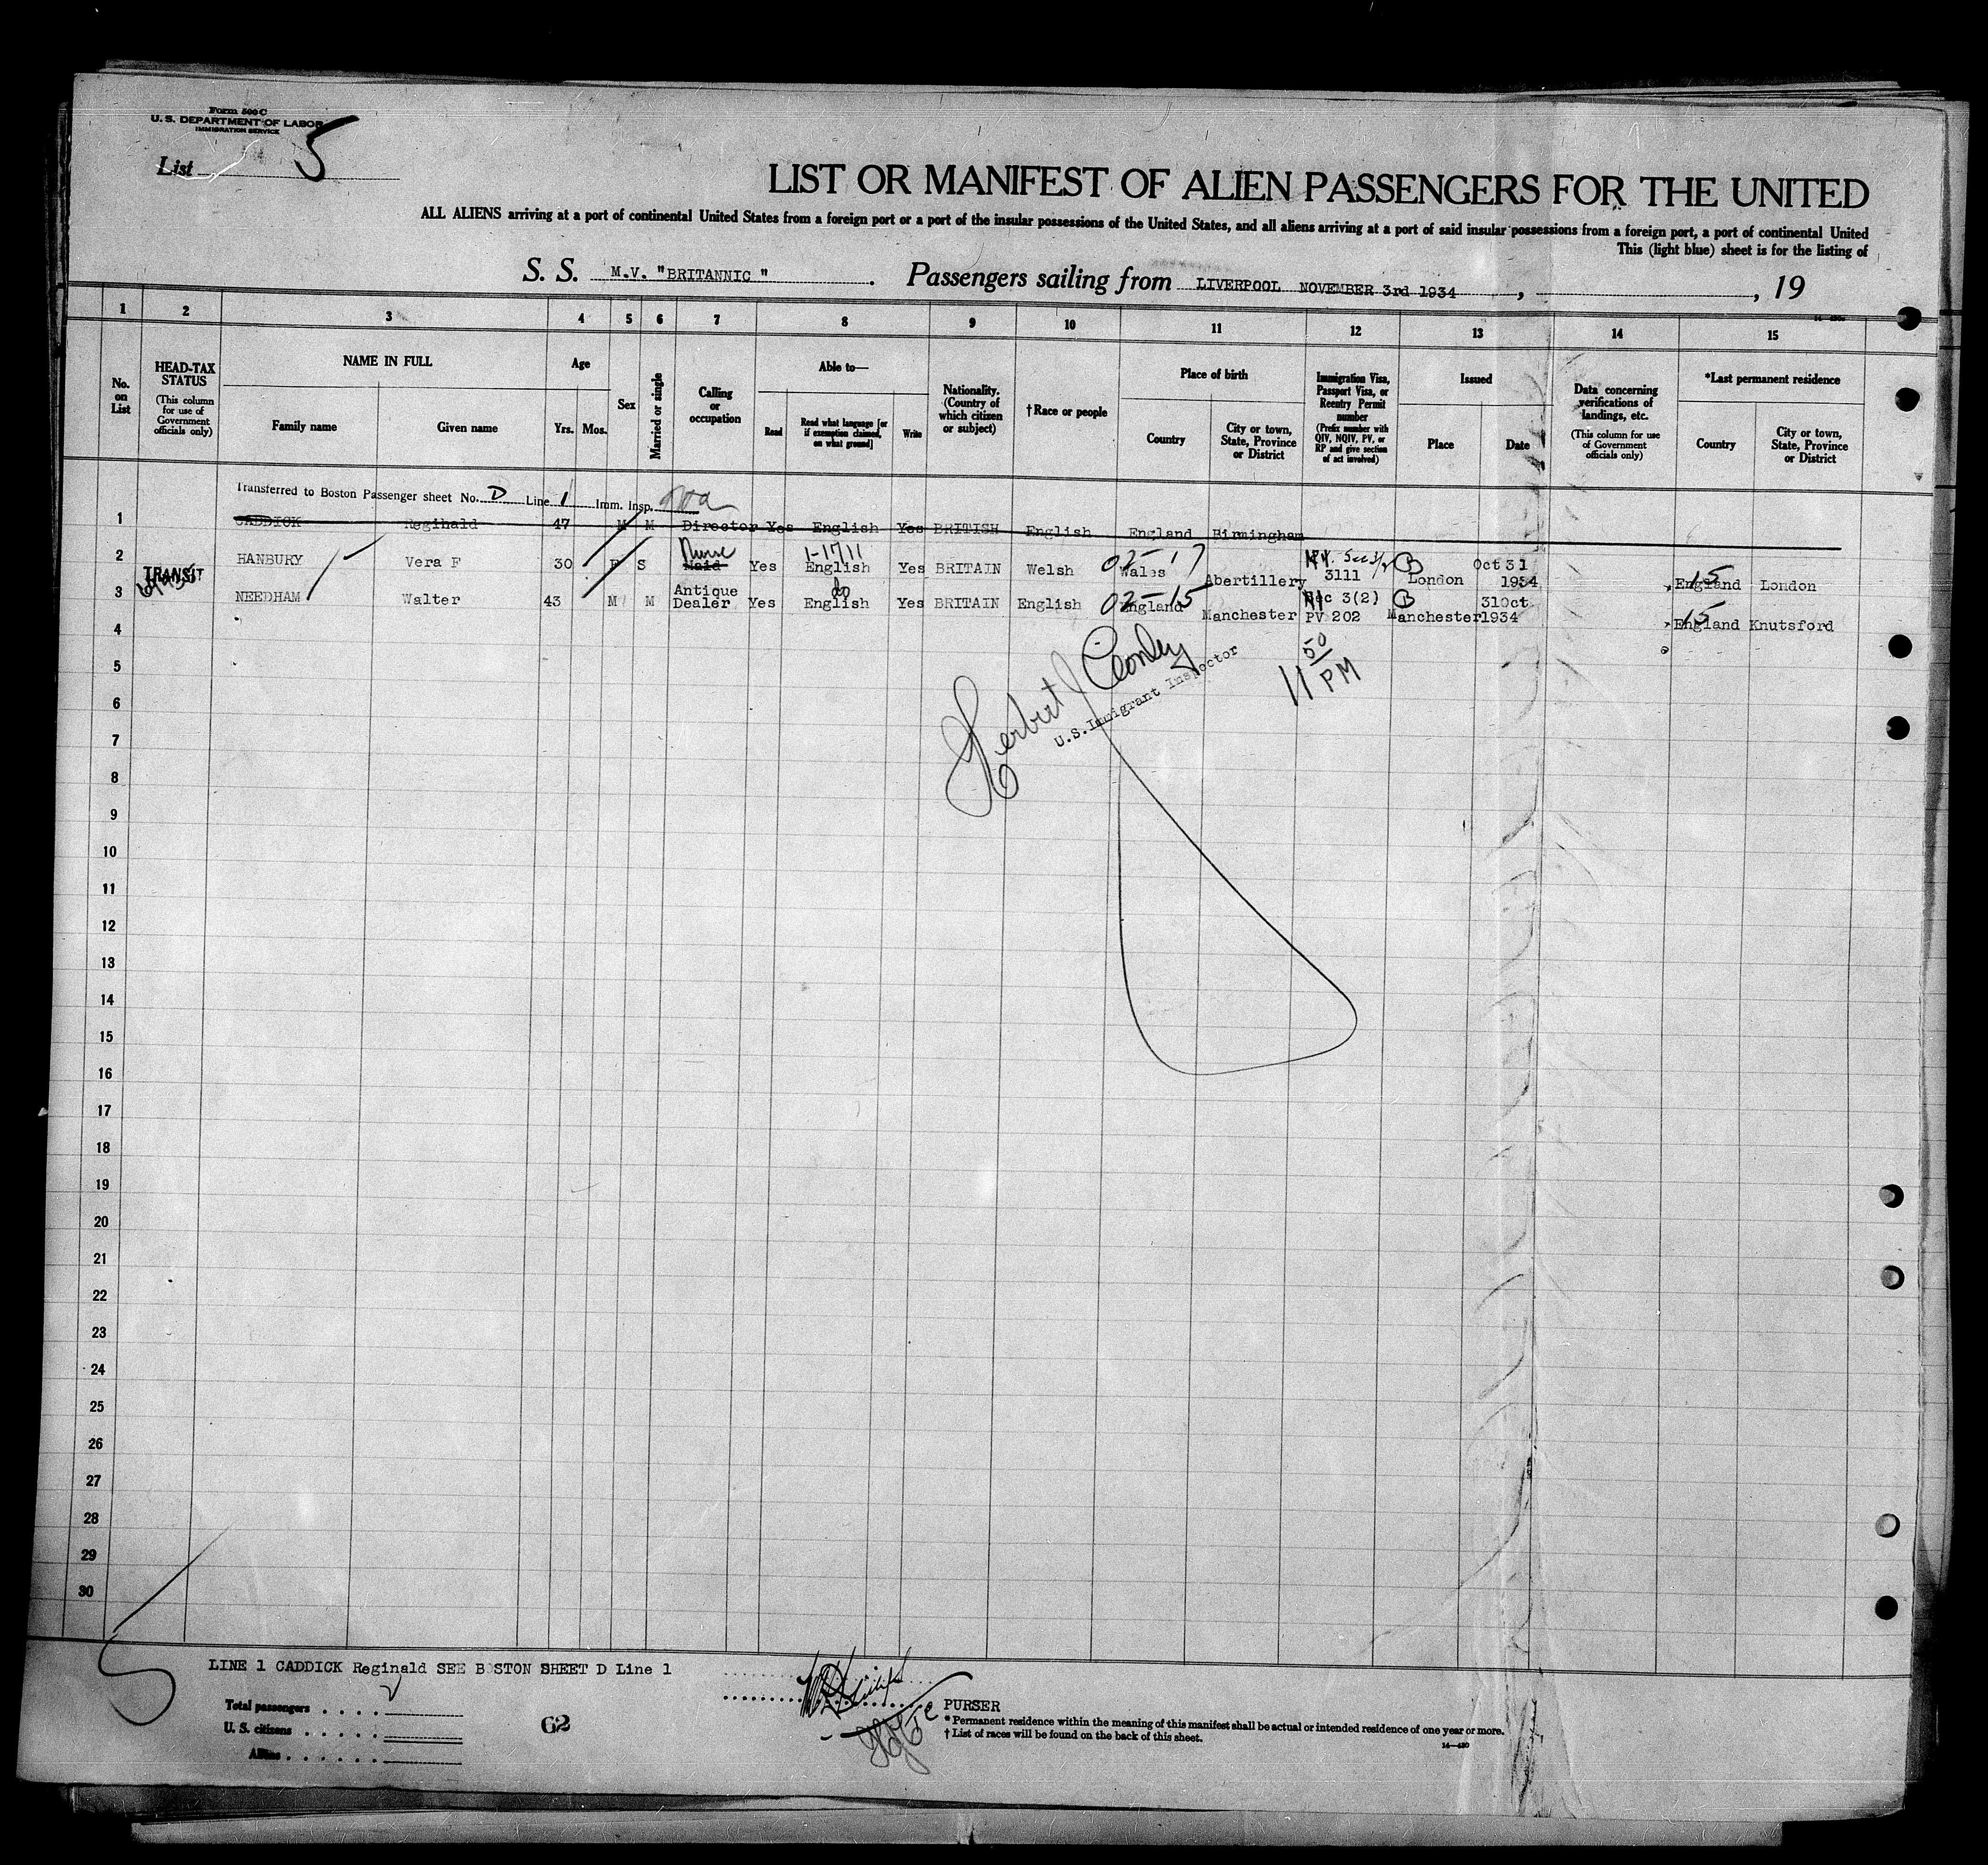 Form 500 C
U. S. DEPARTMENT OF LABOR
IMMIGRATION SERVICE
List 5
LIST OR MANIFEST OF ALIEN PASSENGERS FOR THE UNITED
ALL ALIENS arriving at a port of continental United States from a foreign port or a port of the insular possessions of the United States, and all aliens arriving at a port of said insular possessions from a foreign port, a port of continental United
This (light blue) sheet is for the listing of
S. S. M.V. "BRITANNIC" . Passengers sailing from LIVERPOOL NOVEMBER 3rd 1934 , , 19
1 2 3 4 5 6 7 8 9 10 11 12 13 14 15
No. on List
HEAD-TAX STATUS
(This column for use of Government officials only)
NAME IN FULL
Family name
Given name
Age
Yrs. Mos.
Sex
Married or single
Calling or occupation
Able to—
Read
Read what language [or if exemption claimed, on what ground]
Write
Nationality. (Country of which citizen or subject)
†Race or people
Place of birth
Country
City or town, State, Province or District
Immigration Visa, Passport Visa, or Reentry Permit number
(Prefix number with QIV, NQIV, PV, or RP and give section of act involved)
Issued
Place
Date
Data concerning verifications of landings, etc.
(This column for use of Government officials only)
*Last permanent residence
Country
City or town, State, Province or District
Transferred to Boston Passenger sheet No. D Line 1 Imm. Insp.
1 CADDICK Reginald 47 M M Director Yes English Yes BRITISH English England Birmingham
2 HANBURY Vera F 30 F S Maid Nurse Yes 1-1711 English Yes BRITAIN Welsh 02-17 Wales Abertillery Sec 3/2 3111 B London Oct 31 1934 15 England London
TRANSIT
3 NEEDHAM Walter 43 M M Antique Dealer Yes do English Yes BRITAIN English 02-15 England Manchester Sec 3(2) PV 202 B Manchester 31Oct 1934 15 England Knutsford
4
5
6
7
8
9
10
11
12
13
14
15
16
17
18
19
20
21
22
23
24
25
26
27
28
29
30
Herbert J
U.S. Immigrant Inspector
11 50 PM
LINE 1 CADDICK Reginald SEE BOSTON SHEET D Line 1
Total passengers
U. S. citizens
Aliens
62
PURSER
* Permanent residence within the meaning of this manifest shall be actual or intended residence of one year or more.
† List of races will be found on the back of this sheet.
14—430